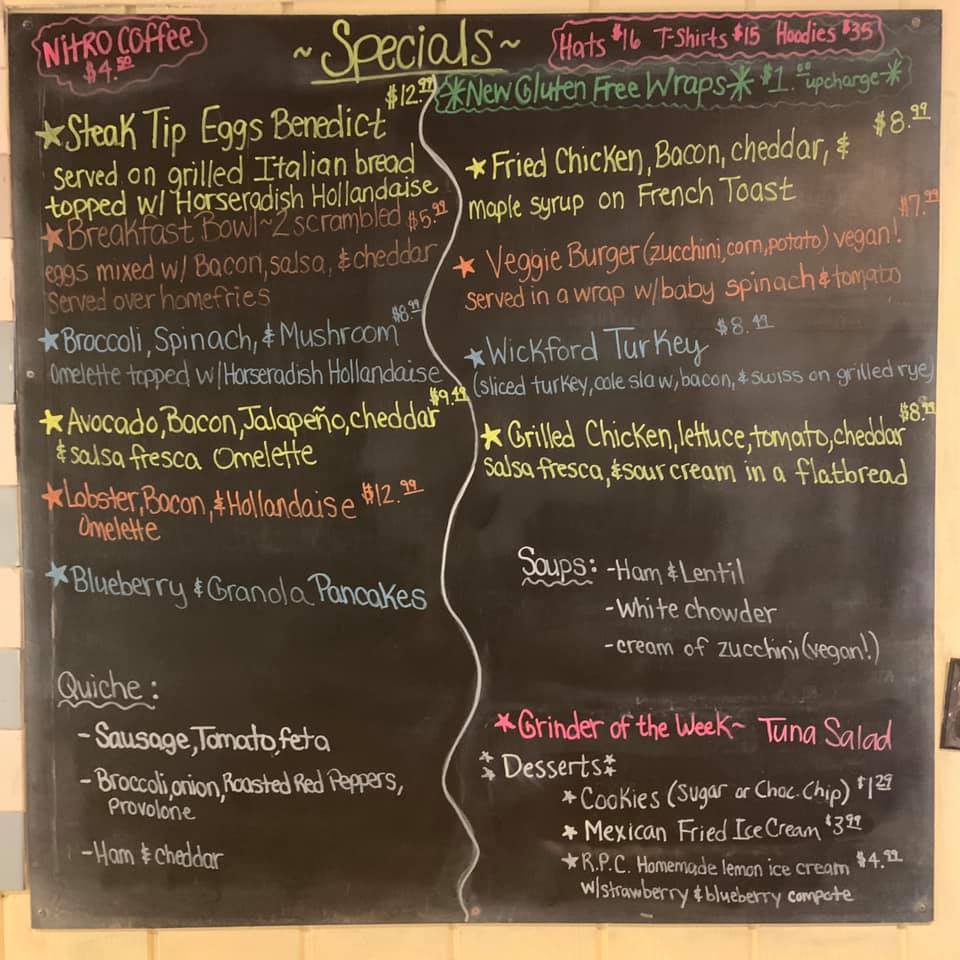 NITRO COFFEE
$4.50
~ Specials ~
Hats $16 T-Shirts $15 Hoodies $35
*New Gluten Free Wraps* $1.00 upcharge*
$12.99
★Steak Tip Eggs Benedict
served on grilled Italian bread
topped w/ Horseradish Hollandaise
★Breakfast Bowl~2 scrambled $5.99
eggs mixed w/ Bacon, salsa, & cheddar
served over homefries
★Broccoli, Spinach, & Mushroom $8.99
Omelette topped w/Horseradish Hollandaise
$9.49
★Avocado, Bacon, Jalapeño, cheddar
& salsa fresca Omelette
★Lobster, Bacon, & Hollandaise $12.99
Omelette
★Blueberry & Granola Pancakes
Quiche:
- Sausage, Tomato, feta
- Broccoli, onion, Roasted Red Peppers,
Provolone
- Ham & cheddar
$8.99
★Fried Chicken, Bacon, cheddar, &
maple syrup on French Toast
$7.99
★Veggie Burger (zucchini, corn, potato) vegan!
served in a wrap w/baby spinach & tomato
★Wickford Turkey $8.49
(sliced turkey, cole slaw, bacon, & swiss on grilled rye)
$8.99
★Grilled Chicken, lettuce, tomato, cheddar
salsa fresca, & sour cream in a flatbread
Soups: -Ham & Lentil
-White chowder
-cream of zucchini (vegan!)
★Grinder of the Week~ Tuna Salad
Desserts:
★Cookies (Sugar or Choc. Chip) $1.29
★Mexican Fried Ice Cream $3.99
★R.P.C. Homemade lemon ice cream $4.99
w/strawberry & blueberry compote